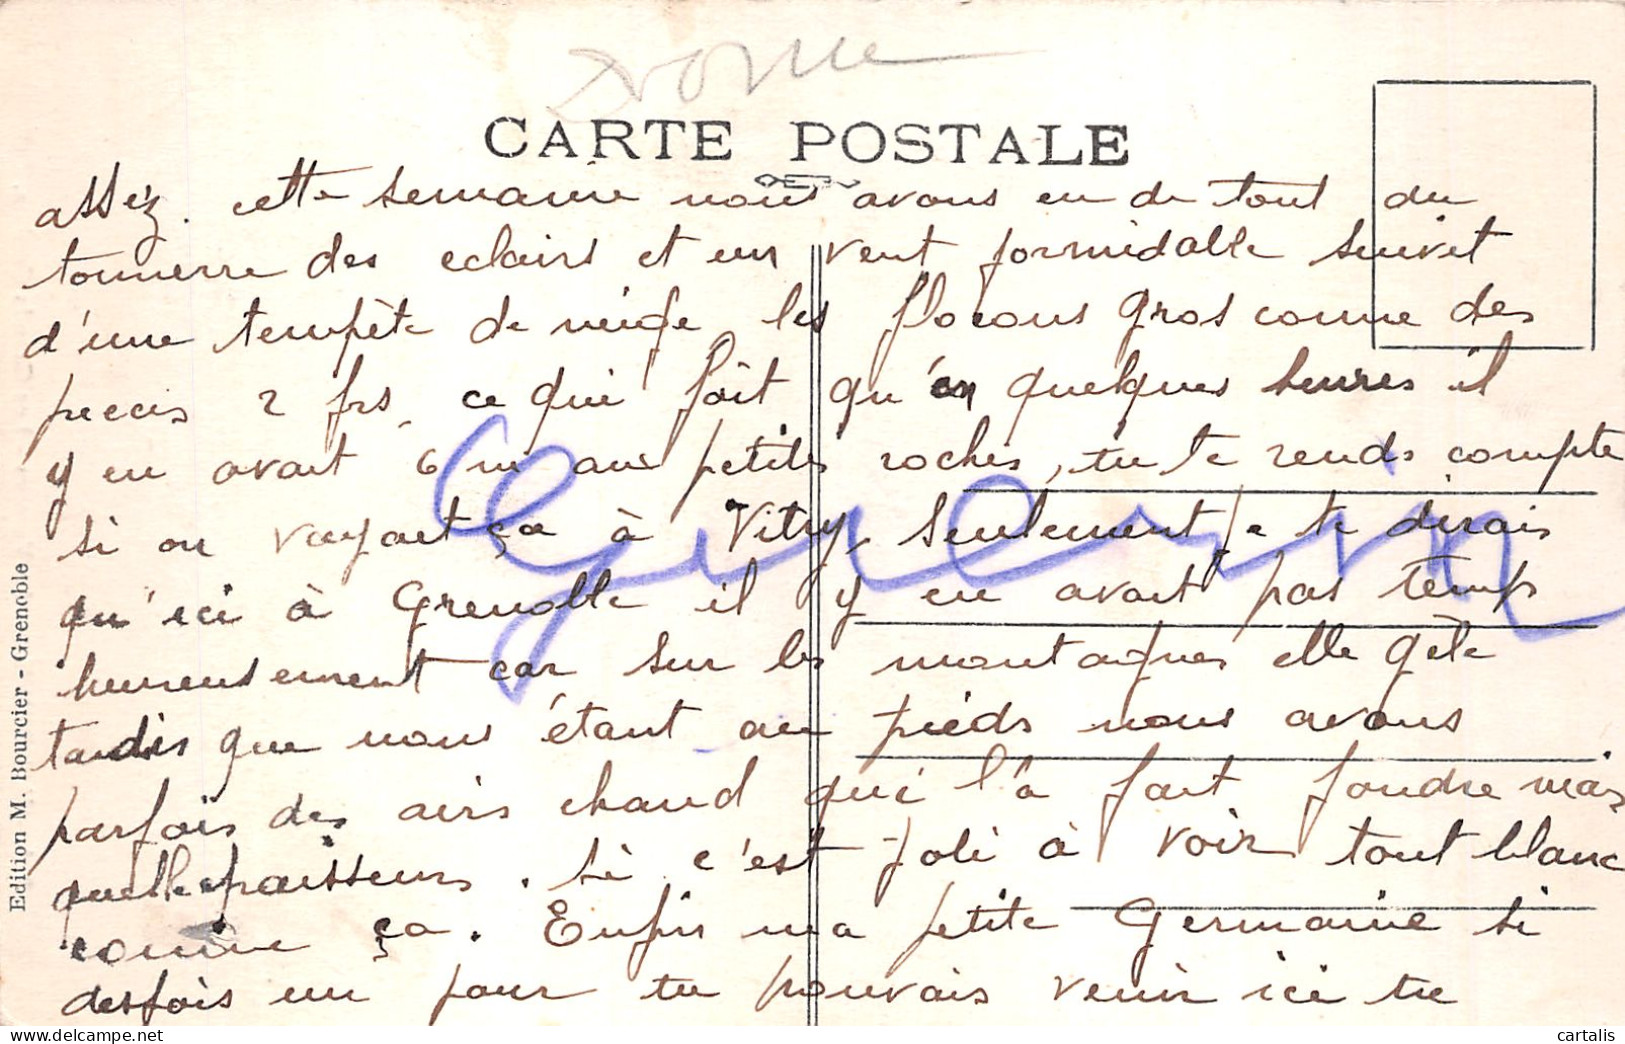 Drome
CARTE POSTALE
assez. cette semaine nous avons eu de tout du
tonnerre des eclairs et un vent formidable suivit
d'une tempète de neige les flocons gros comme des
pieces 2 frs, ce qui fait qu'en quelques heures il
y en avait 6 m au petites roches, tu te rends compte
si on voyait ça à Vitry, seulement je te dirais
qu'ici à Grenoble il y en avait pas temps
heureusement car sur les montagnes elle gèle
tandis que nous étant au pieds nous avons
parfois des airs chaud qui l'a fait fondre mais
quelle epaisseurs. si c'est joli à voir tout blanc
comme ça. Enfin ma petite Germaine si
desfois un jour tu pouvais venir ici tu
Edition M. Bourcier - Grenoble
cartalis